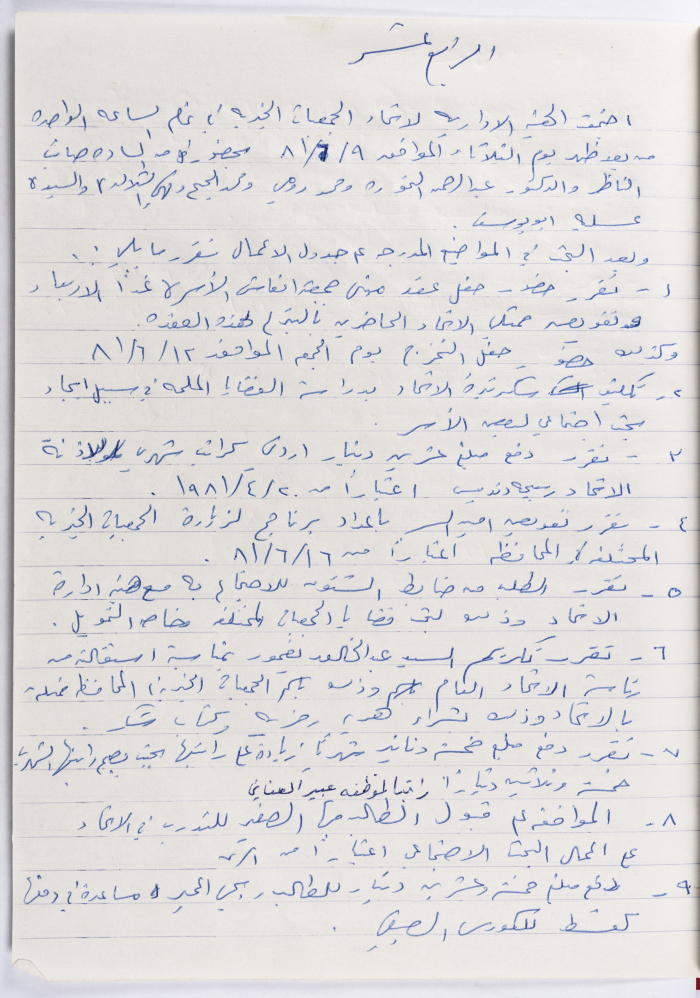 الرابع عشر
اجتمعت الهيئة الادارية لاتحاد الجمعيات الخيرية في تمام الساعة الواحدة
من بعد ظهر يوم الثلاثاء الموافق ٩/٦/٨١ بحضور كل من السادة
الناظر والدكتور عبد الرحمن ومحمد روحي والسيدة
ابو يوسف .
وبعد البحث في المواضيع المدرجة على جدول الاعمال تقرر ما يلي :
١- تقرر حضور حفل عقد جمعية انعاش الأسرة غداً الاربعاء
وتفويض ممثلي الاتحاد الحاضرين بالتبرع لهذه
وكذلك حضور حفل التخرج يوم الجمعة الموافق ١٢/٦/٨١
٢- تكليف سكرتيرة الاتحاد بدراسة القضايا الملحة في سبيل ايجاد
بحث اجتماعي لبعض الأسر .
٣- تقرر دفع مبلغ عشرين دينار اردني كراتب شهري
الاتحاد اعتباراً من ٢٠/٤/١٩٨١ .
٤- تقرر تفويض امين السر باعداد برنامج لزيارة الجمعيات الخيرية
المختلفة في المحافظة اعتباراً من ١٦/٦/٨١ .
٥- تقرر الطلب من ضابط الشئون للاجتماع به مع هيئة ادارة
الاتحاد وذلك لبحث قضايا الجمعيات المختلفة التمويل .
٦- تقرر تكريم السيد عبد الخالق يغمور بمناسبة استقالته من
رئاسة الاتحاد العام وذلك باسم الجمعيات الخيرية في المحافظة ممثلة
بالاتحاد وذلك بشراء هدية رمزية وكتاب شكر .
٧- تقرر دفع مبلغ خمسة دنانير شهرياً زيادة على راتبها بحيث يصبح راتبها الشهري
خمسة وثلاثين ديناراً راتب الموظفة عبير
٨- الموافقة على قبول الطالبة الصغير للتدرب في الاتحاد
على اعمال البحث الاجتماعي اعتباراً من
٩- دفع مبلغ خمسة وعشرين دينار للطالب مساعدة في دفع
كقسط للكورس الصيفي .